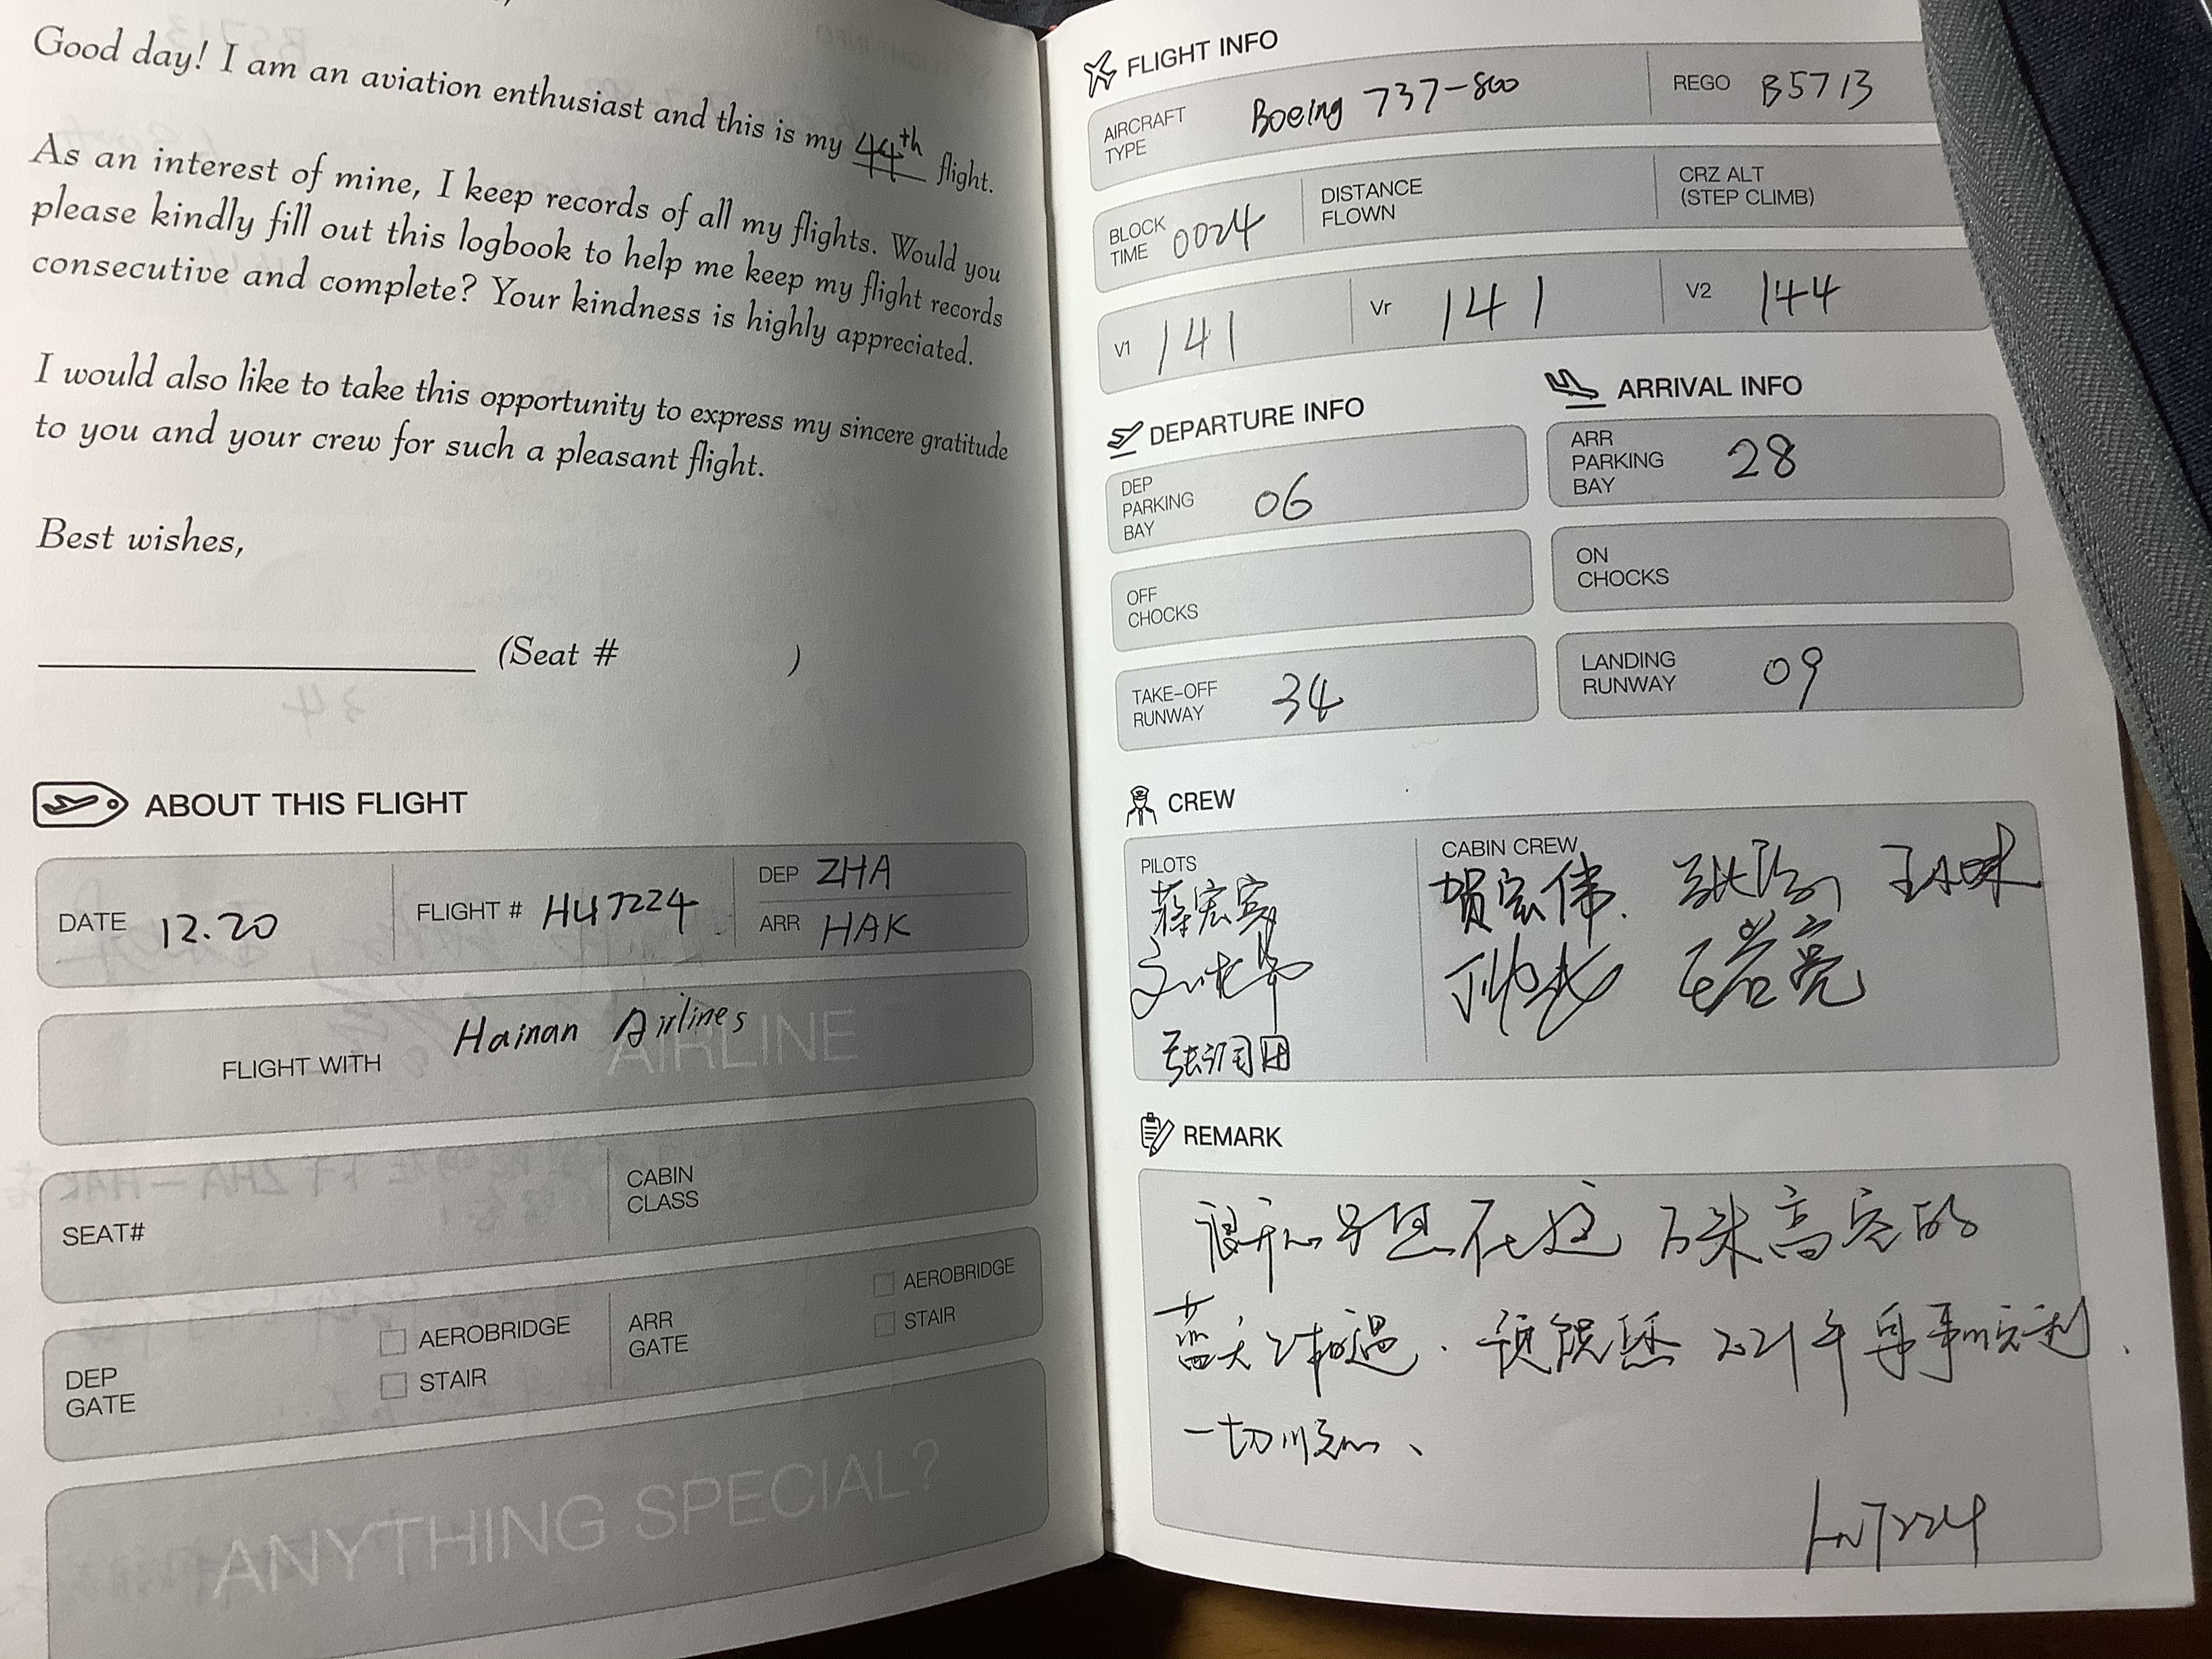 Good day! I am an aviation enthusiast and this is my 44th flight.
As an interest of mine, I keep records of all my flights. Would you
please kindly fill out this logbook to help me keep my flight records
consecutive and complete? Your kindness is highly appreciated.
I would also like to take this opportunity to express my sincere gratitude
to you and your crew for such a pleasant flight.
Best wishes,
(Seat # )
ABOUT THIS FLIGHT
DATE 12.20
FLIGHT # HU7224
DEP ZHA
ARR HAK
FLIGHT WITH Hainan Airlines
AIRLINE
SEAT#
CABIN
CLASS
DEP
GATE
AEROBRIDGE
STAIR
ARR
GATE
AEROBRIDGE
STAIR
ANYTHING SPECIAL?
FLIGHT INFO
AIRCRAFT
TYPE
Boeing 737-800
REGO B5713
BLOCK
TIME
0024
DISTANCE
FLOWN
CRZ ALT
(STEP CLIMB)
V1 141
Vr 141
V2 144
DEPARTURE INFO
DEP
PARKING
BAY
06
OFF
CHOCKS
TAKE-OFF
RUNWAY
34
ARRIVAL INFO
ARR
PARKING
BAY
28
ON
CHOCKS
LANDING
RUNWAY
09
CREW
PILOTS
蒋宏宾
CABIN CREW
贺宏伟.
REMARK
很开心 在这万米高空的
蓝天 相遇. 预祝您2021年 事 顺利.
一切顺心、
HU7224